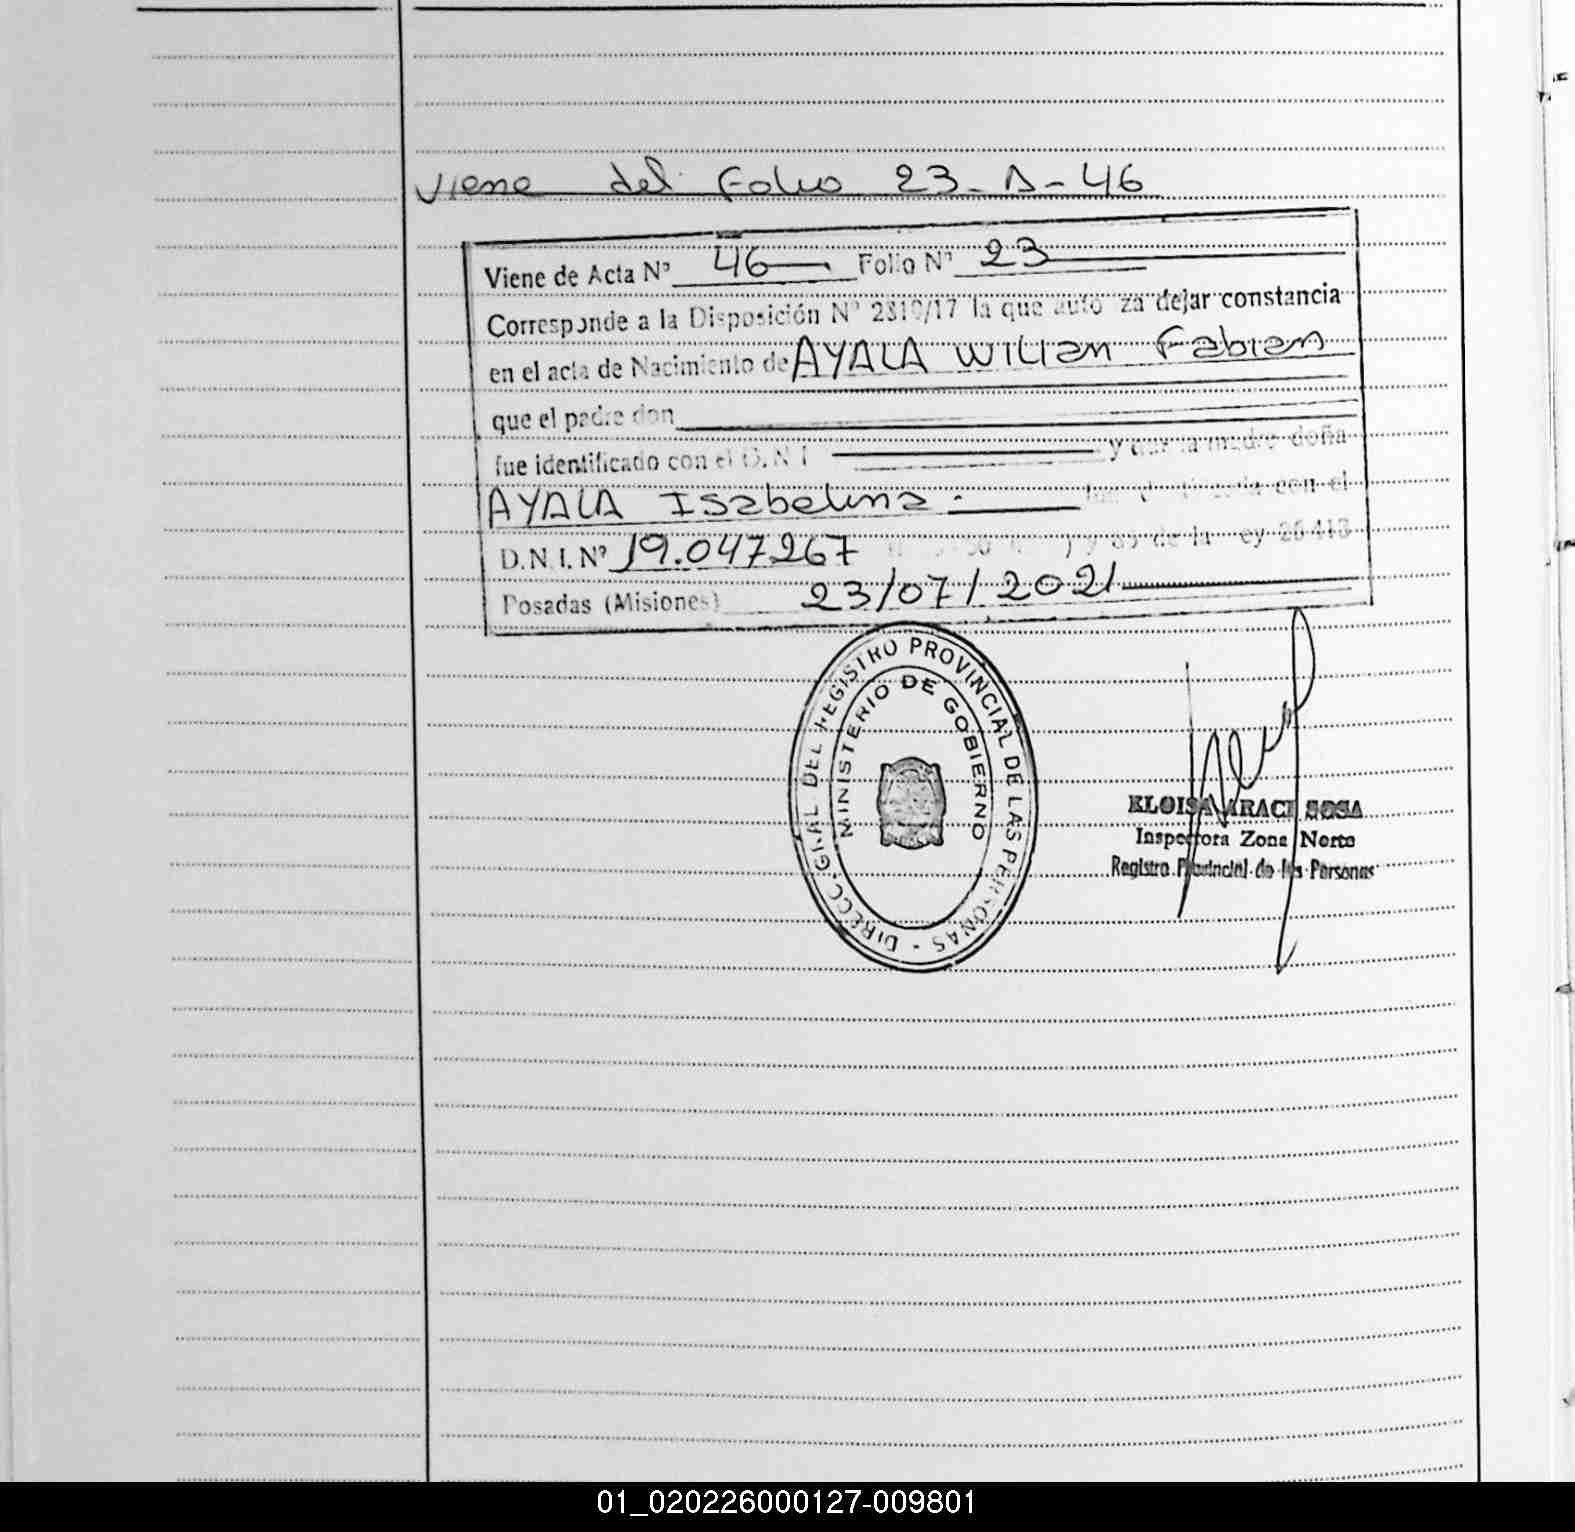 Viene del Folio 23-A-46
Viene de Acta Nº 46 Folio Nº 23
Corresponde a la Disposición Nº 2810/17 la que autoriza dejar constancia
en el acta de Nacimiento de AYALA WILIAN Fabian
que el padre don
fue identificado con el D.N.I y que la madre doña
AYALA Isabelina.- con el
D.N.I. Nº 19.047.267 y 85 de la Ley 26413
Posadas (Misiones) 23/07/2021
DIRECC. GRAL DEL REGISTRO PROVINCIAL DE LAS PERSONAS -
MINISTERIO DE GOBIERNO
ELOISA ARACI SOSA
Inspectora Zona Norte
Registro Provincial de las Personas
01_020226000127-009801